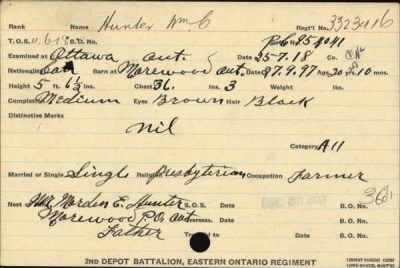 Rank Name Hunter Wm. C Reg't No. 3323416
T.O.S. B.O. No.
Examined at Ottawa Ont. Date 25-7-18 Co.
Nationality Can Born at Morewood Ont. Date 27.9.97 Age 20 yrs 10 mos.
Height 5 ft. Chest 36 ins. 3 Weight lbs.
Complexion Medium Eyes Brown Hair Black
Distinctive Marks
nil
Category A11
Married or Single Single Religion Presbyterian Occupation Farmer
Next of Kin Morden E. Hunter S.O.S. B.O. No.
Morewood P.O. Ont Overseas. B.O. No.
Father Transf'd to B.O. No.
2ND DEPOT BATTALION, EASTERN ONTARIO REGIMENT